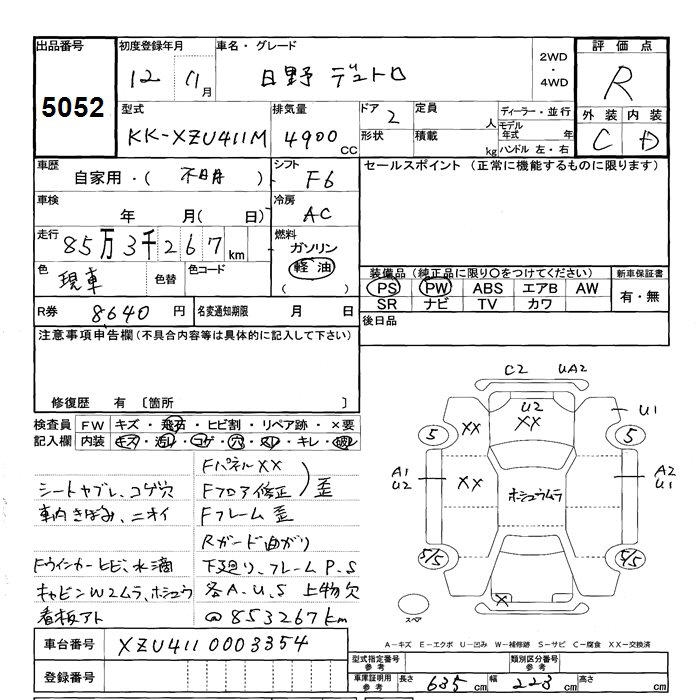 出品番号 初度登録年月 車名・グレード 2WD・4WD 評価点
5052 12 11月 日野 デュトロ R
型式 排気量 ドア 定員 ディーラー・並行 外装 内装
KK-XZU411M 4900CC 2 人 モデル年式 年 C D
形状 積載 kg ハンドル 左・右
車歴 シフト セールスポイント (正常に機能するものに限ります)
自家用・( 不明 ) F6
車検 冷房
年 月( 日) AC
走行 燃料
85万3千267km ガソリン
色 色替 色コード 軽油
現車 ( )
装備品(純正品に限り○をつけてください) 新車保証書
PS PW ABS エアB AW 有・無
SR ナビ TV カワ
R券 8640円 名変通知期限 月 日 後日品
注意事項申告欄(不具合内容等は具体的に記入して下さい)
修復歴 有 〔箇所 〕
検査員 FW キズ・飛石・ヒビ割・リペア跡・×要
記入欄 内装 キズ・汚れ・コゲ・穴・スレ・キレ・破レ
FパネルXX
シートヤブレ、コゲ穴 Fフロア修正 歪
車内きばみ、ニオイ Fフレーム歪
Rガード曲がり
Fウインカーヒビ、水滴 下廻り、フレームP.S
キャビンW2ムラ、ホシュウ 各A.U.S 上物欠
看板アト @853267km
C2 UA2
U2 XX
XX U1
5 5
A1 U2 XX ホシュウムラ A2 U1
5/5 5/5
X
スペア
車台番号 XZU411 0003354
A-キズ E-エクボ U-凹み W-補修跡 S-サビ C-腐食 XX-交換済
登録番号
型式指定番号 参考 類別区分番号 参考
車庫証明用 参考 長さ 635cm 幅 223cm 高さ cm